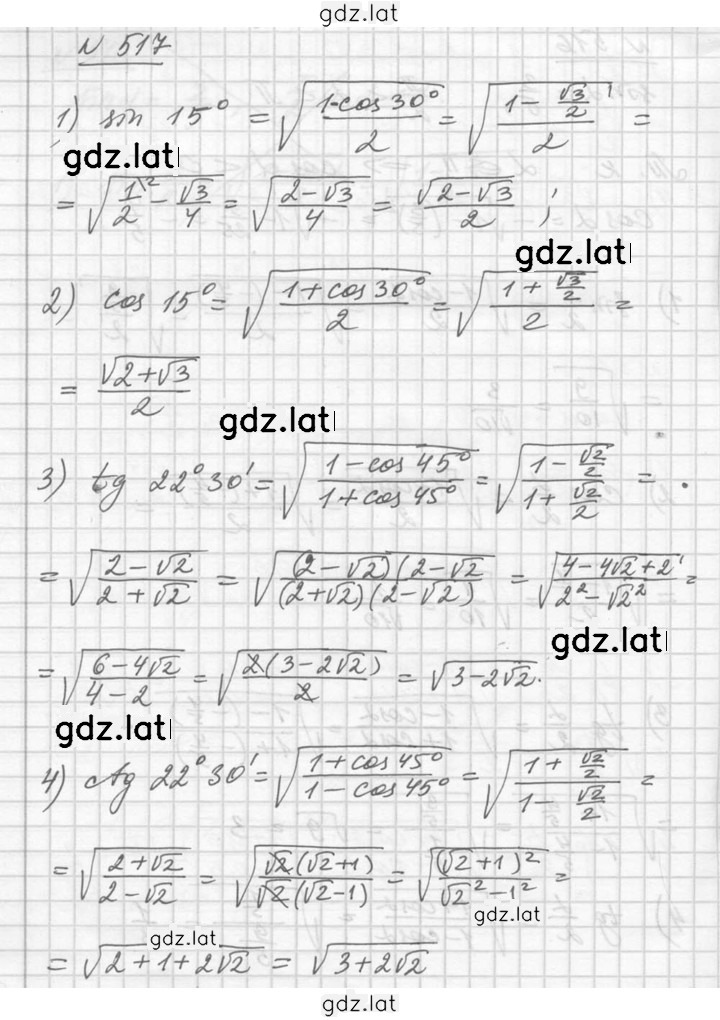 gdz.lat
N 517
1) sin 15° = √((1-cos30°)/2) = √((1 - √3/2)/2) =
gdz.lat
= √(1\²/2 - √3/4) = √((2-√3)/4) = √(2-√3)/2 ;
gdz.lat
2) cos 15° = √((1+cos30°)/2) = √((1 + √3/2)/2) =
= √(2+√3)/2
gdz.lat
3) tg 22°30' = √((1-cos45°)/(1+cos45°)) = √((1 - √2/2)/(1 + √2/2)) =
= √((2-√2)/(2+√2)) = √((2-√2)(2-√2/(2+√2)(2-√2)) = √((4-4√2+2)/(2²-√2²)) =
gdz.lat
= √((6-4√2)/(4-2)) = √(2(3-2√2)/2) = √(3-2√2).
gdz.lat
4) ctg 22°30' = √((1+cos45°)/(1-cos45°)) = √((1 + √2/2)/(1 - √2/2)) =
= √((2+√2)/(2-√2)) = √(√2(√2+1)/√2(√2-1)) = √((√2+1)²/(√2²-1²)) =
gdz.lat
gdz.lat
= √(2+1+2√2) = √(3+2√2)
gdz.lat